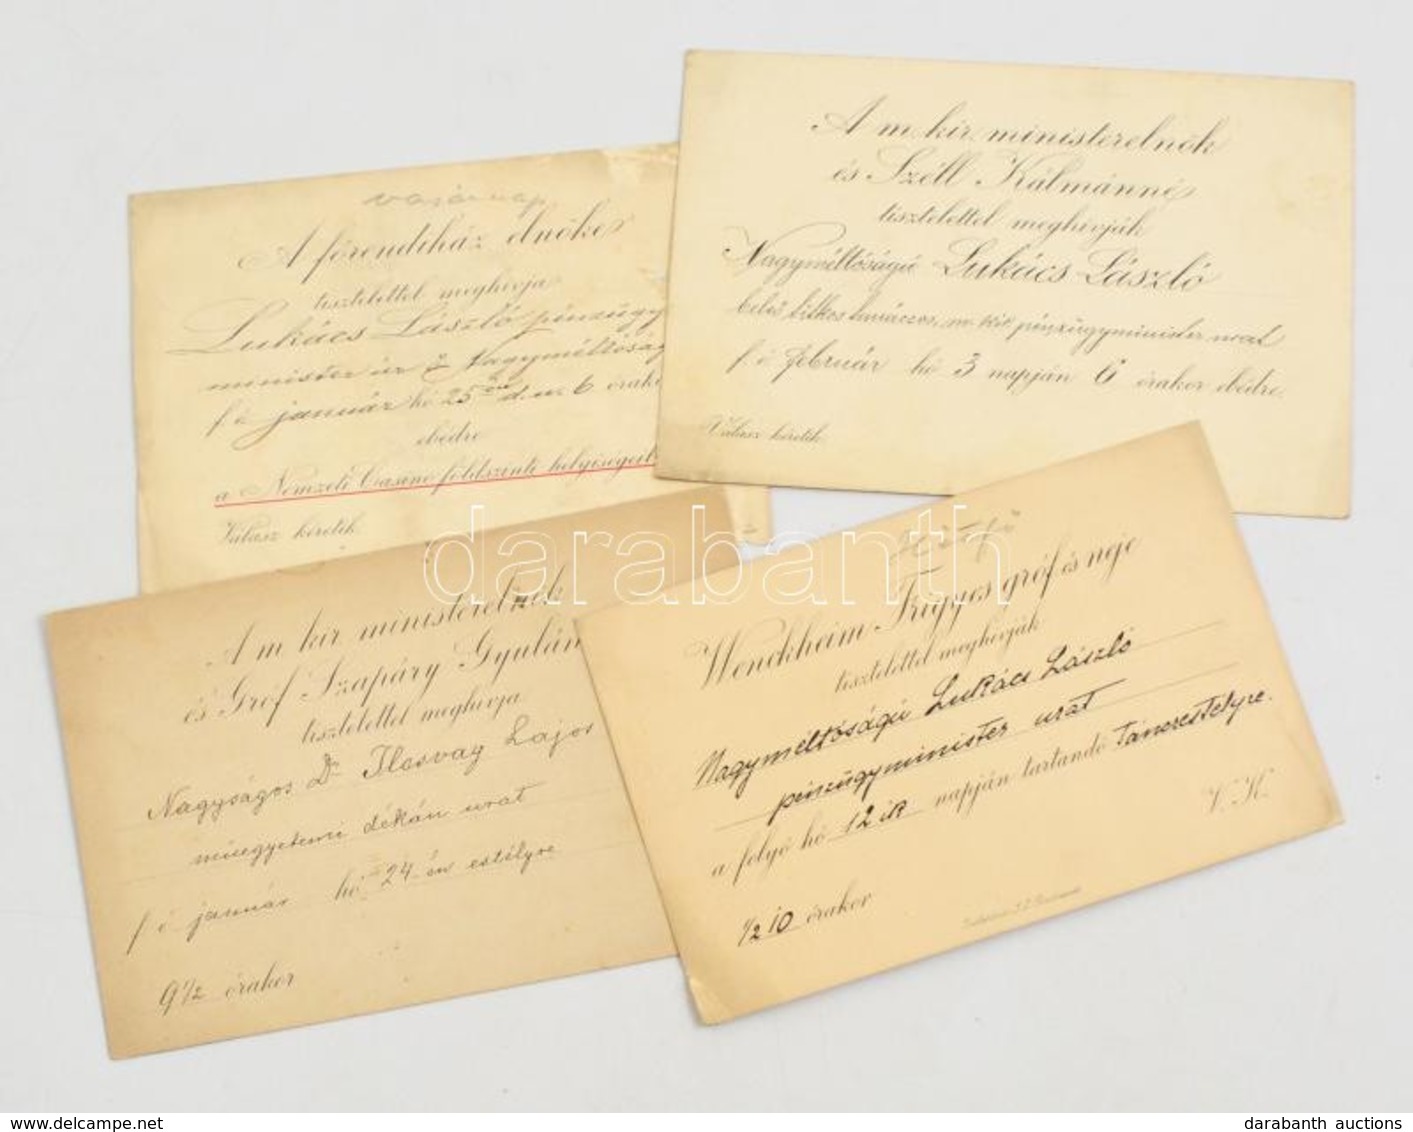 vasárnap
A főrendiház elnöke
tisztelettel meghívja
Lukács László pénzügy
minister úr ő Nagyméltóság
f. é. január hó 25 én d. u. 6 órako
ebédre
a Nemzeti Casino földszinti helyiségeib
Válasz kéretik.
A m. kir. ministerelnök
és Széll Kálmánné
tisztelettel meghívják
Nagyméltóságú Lukács László
belső titkos tanácsos, m. kir. pénzügyminister urat
f. é. február hó 3 napján 6 órakor ebédre.
Válasz kéretik.
A m. kir. ministerelnök
és Gróf Szapáry Gyulán
tisztelettel meghívja
Nagyságos Dr Ilosvay Lajos
műegyetemi dékán urat
f. é. január hó 24-én estélyre
9 1/2 órakor
Hétfő
Wenckheim Frigyes gróf és neje
tisztelettel meghívják
Nagyméltóságú Lukács László
pénzügyminister urat
a folyó hó 12 ik napján tartandó táncestélyre.
1/2 10 órakor
V. K.
darabanth
darabanth-auctions
delcampe.net